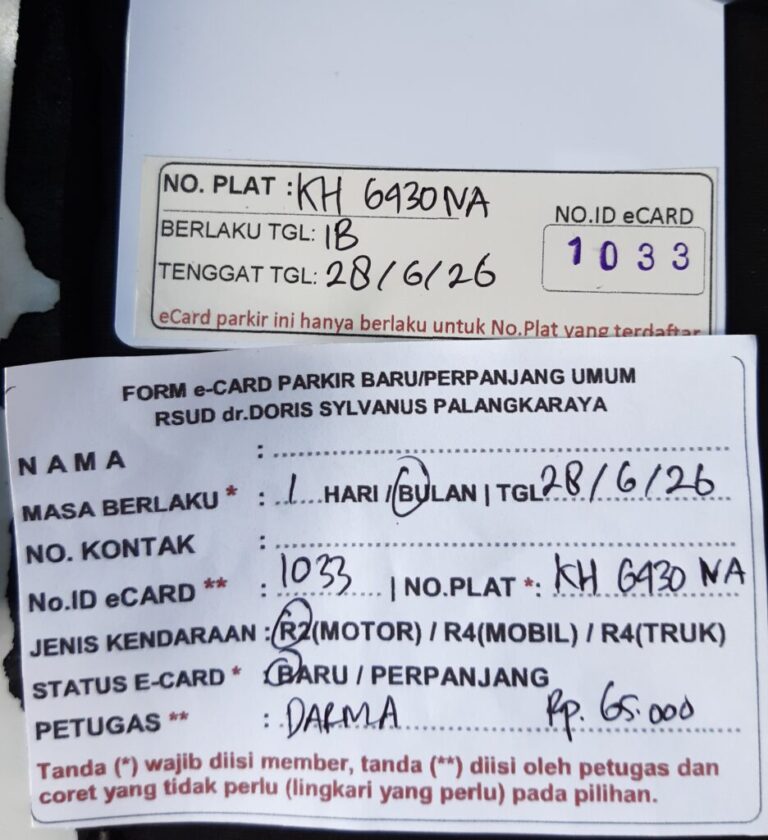 NO. PLAT : KH 6930 NA
BERLAKU TGL: 1B
TENGGAT TGL: 28/6/26
NO.ID eCARD
1033
eCard parkir ini hanya berlaku untuk No.Plat yang terdaftar
FORM e-CARD PARKIR BARU/PERPANJANG UMUM
RSUD dr.DORIS SYLVANUS PALANGKARAYA
NAMA :
MASA BERLAKU * : 1 HARI / BULAN | TGL 28/6/26
NO. KONTAK :
No.ID eCARD ** : 1033 | NO.PLAT *: KH 6930 NA
JENIS KENDARAAN : R2(MOTOR) / R4(MOBIL) / R4(TRUK)
STATUS E-CARD * : BARU / PERPANJANG
PETUGAS ** : DARMA Rp. 65.000
Tanda (*) wajib diisi member, tanda (**) diisi oleh petugas dan
coret yang tidak perlu (lingkari yang perlu) pada pilihan.